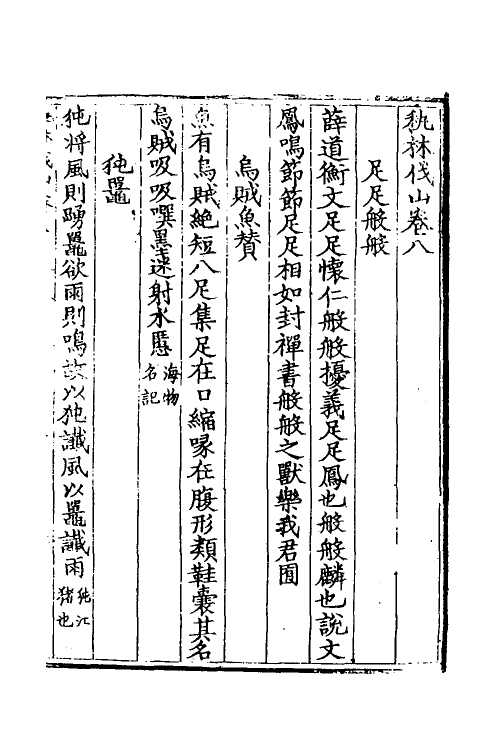 秇林伐山卷八
足足般般
薛道衡文足足懷仁般般擾義足足鳳也般般麟也說文
鳳鳴節節足足相如封禪書般般之獸樂我君囿
烏賊魚賛
魚有烏賊絶短八足集足在口縮喙在腹形類鞋囊其名
烏賊吸吸噀墨迷射水慝海物名記
㹠鼉
㹠将風則踴鼉欲雨則鳴諺以㹠讖風以鼉讖雨㹠江猪也